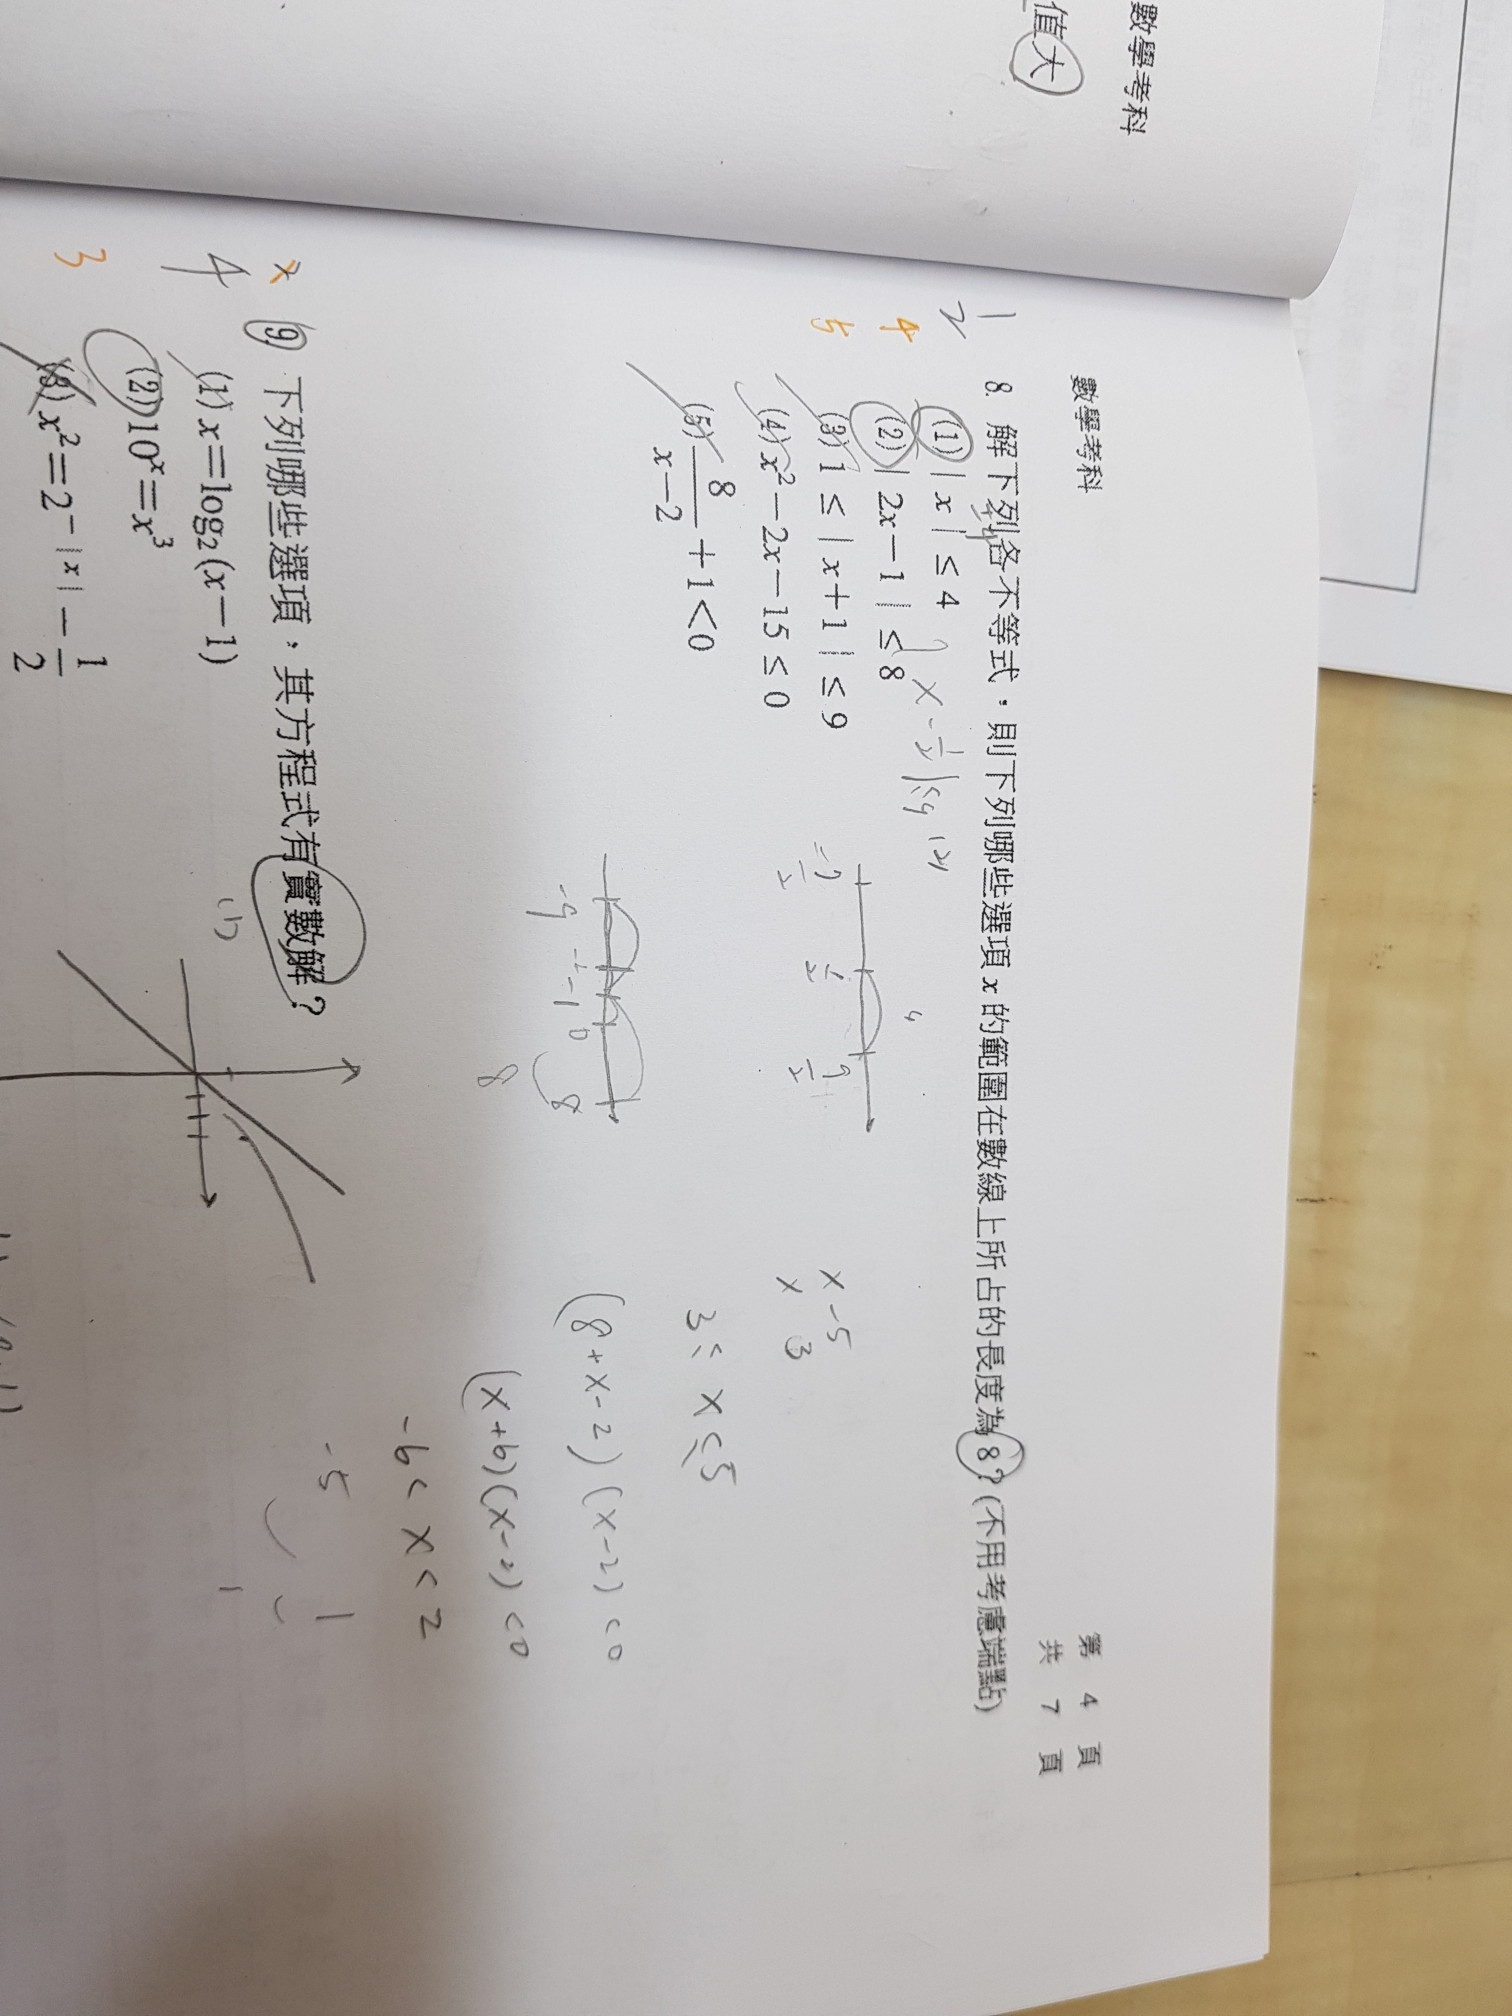 數學考科
值大
數學考科
第 4 頁
共 7 頁
8. 解下列各不等式，則下列哪些選項 x 的範圍在數線上所占的長度為 8？(不用考慮端點)
(1) | x | ≤ 4
(2) | 2x－1 | ≤ 8
(3) 1 ≤ | x＋1 | ≤ 9
(4) x²－2x－15 ≤ 0
(5) 8/(x－2) ＋1＜0
1
2
4
5
-9 -1 0 8
8
x -5
x 3
3 ≤ x ≤ 5
(8+x-2)(x-2)<0
(x+6)(x-2)<0
-6 < x < 2
-5 1
1
4
3
9. 下列哪些選項，其方程式有實數解？
(1) x＝log₂(x－1)
(2) 10ˣ＝x³
(3) x²＝2^(－|x|)－1/2
(1)